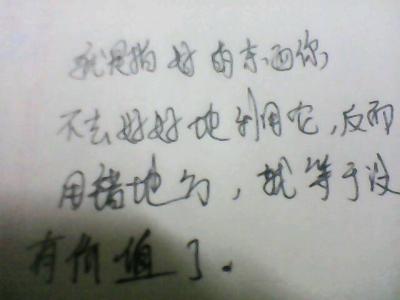 就是指好的东西你,
不去好好地利用它,反而
用错地方,就等于没
有价值了.